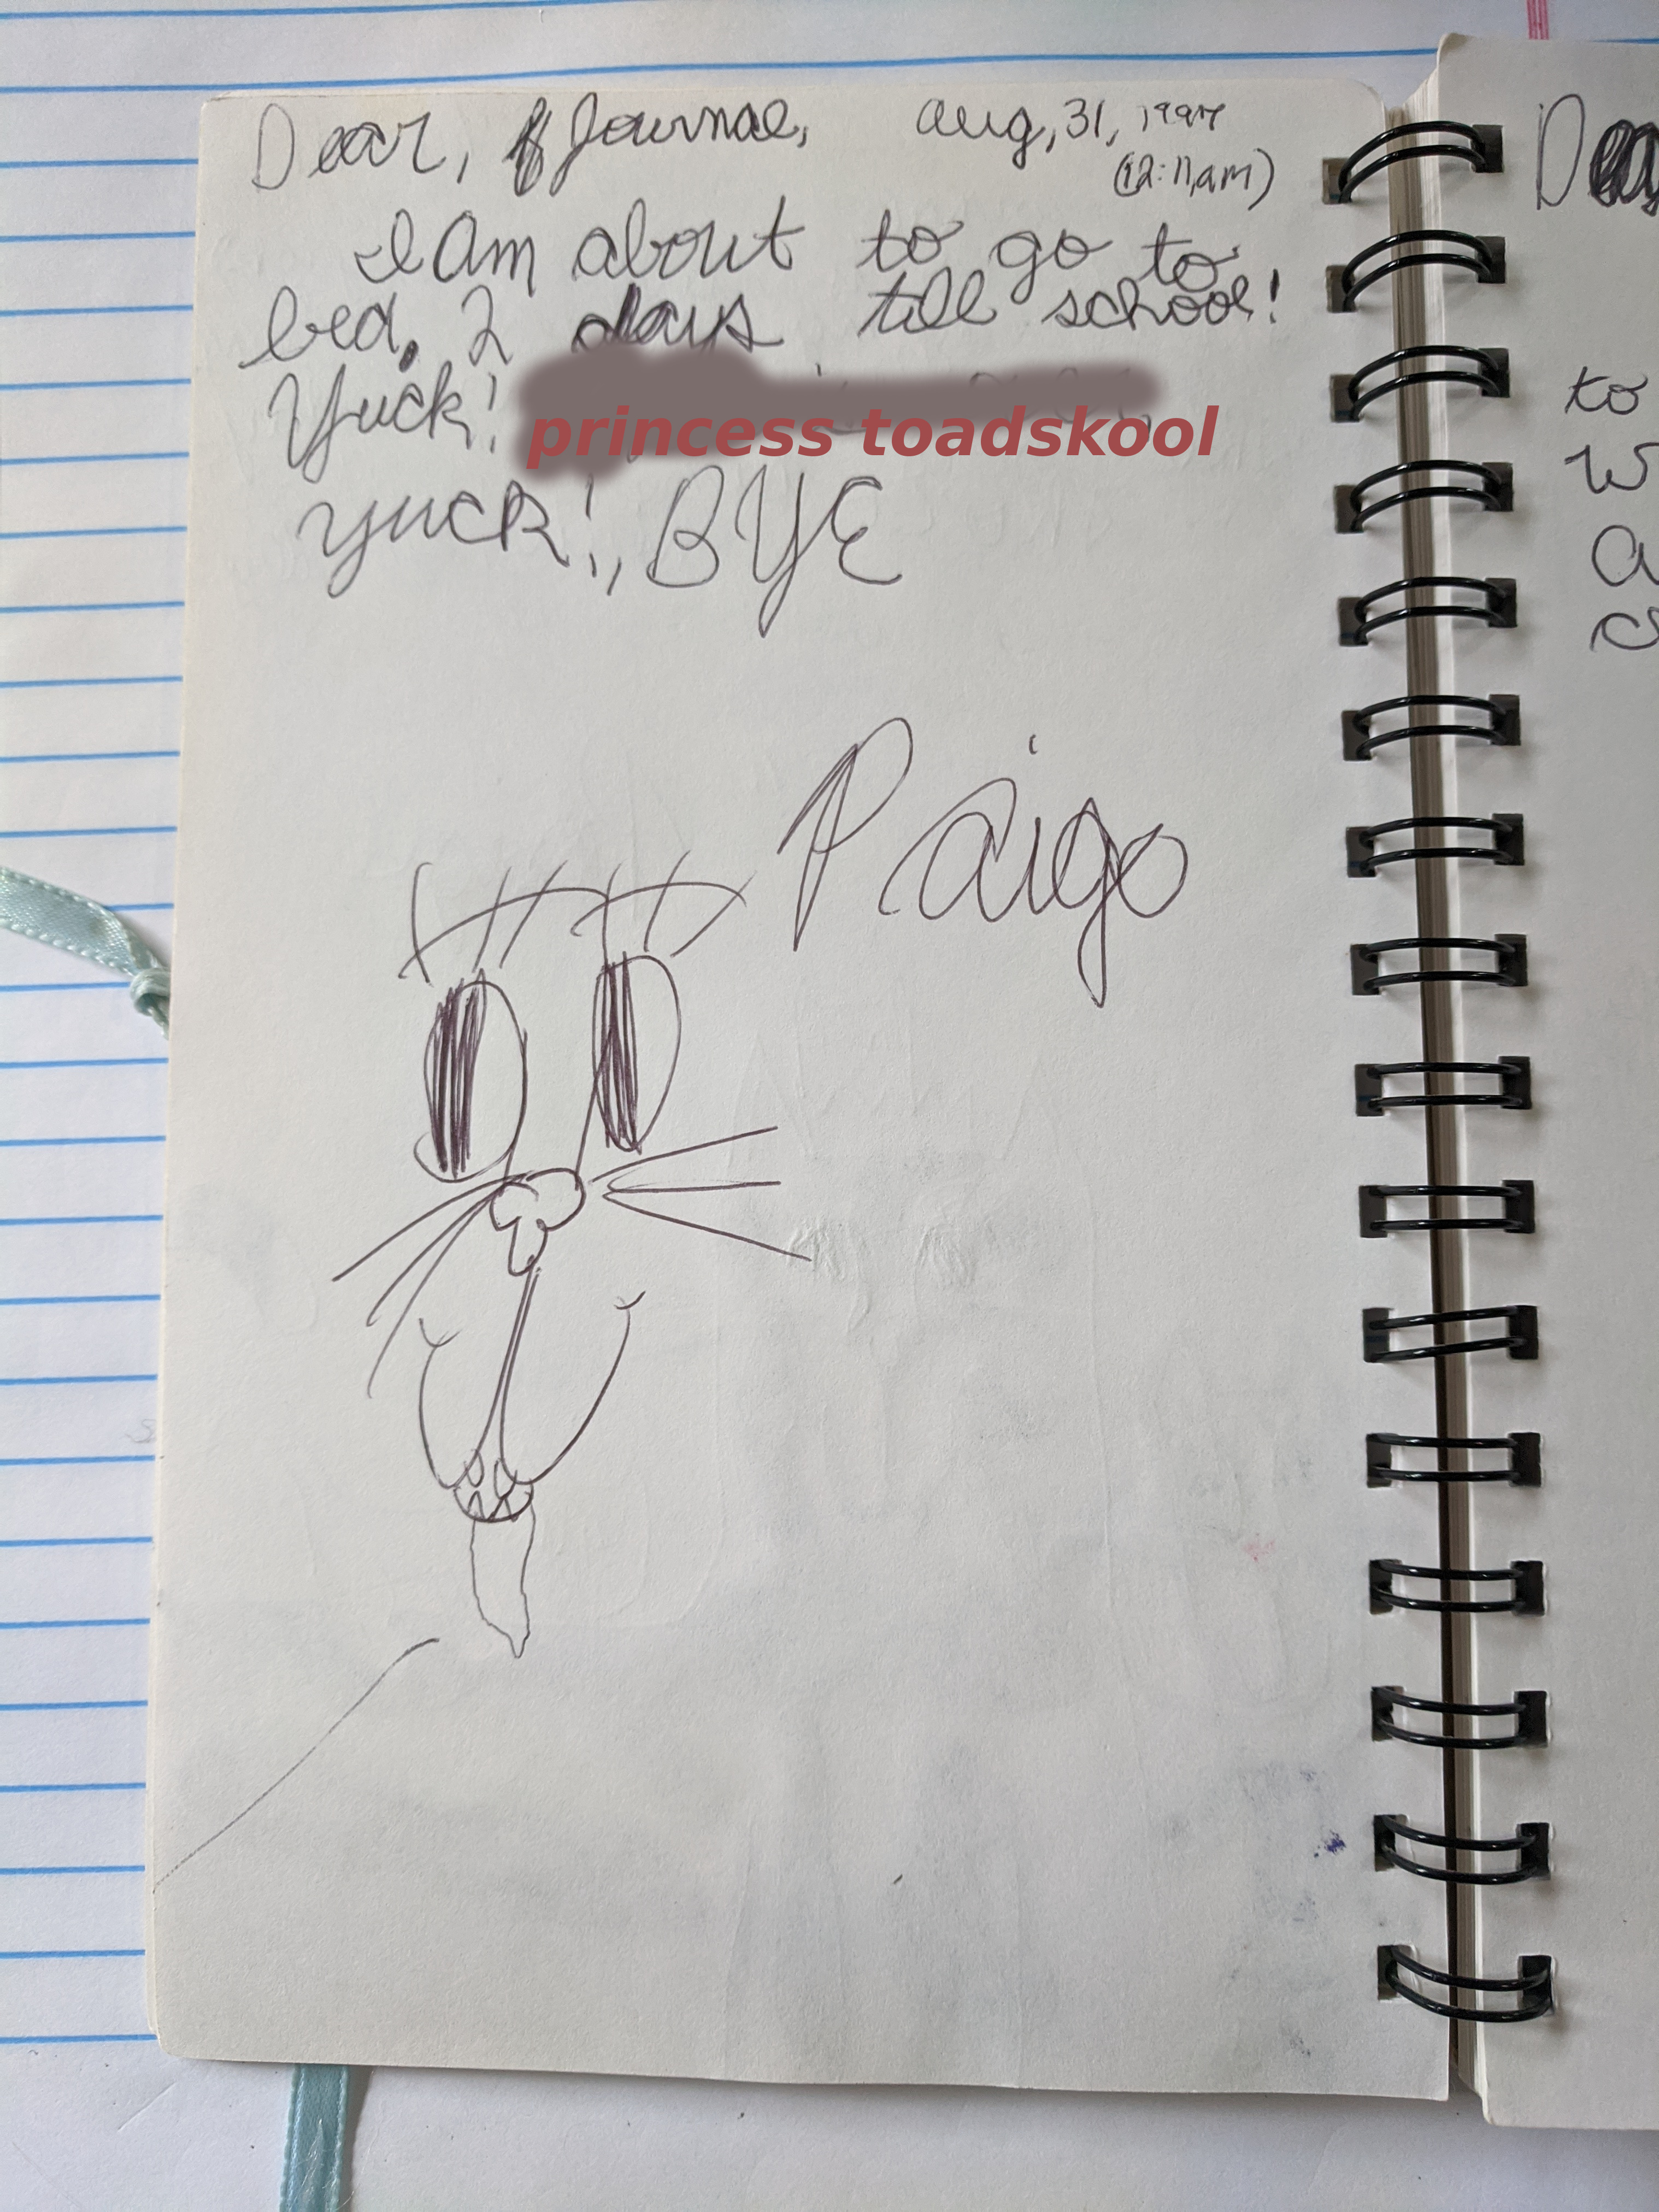 Dear, Journal, Aug, 31, 1997
(12:11am)
I Am about to go to
bed. 2 days till school!
Yuck!
princess toadskool
yuck!, BYE
Paige
Dea
to
w
a